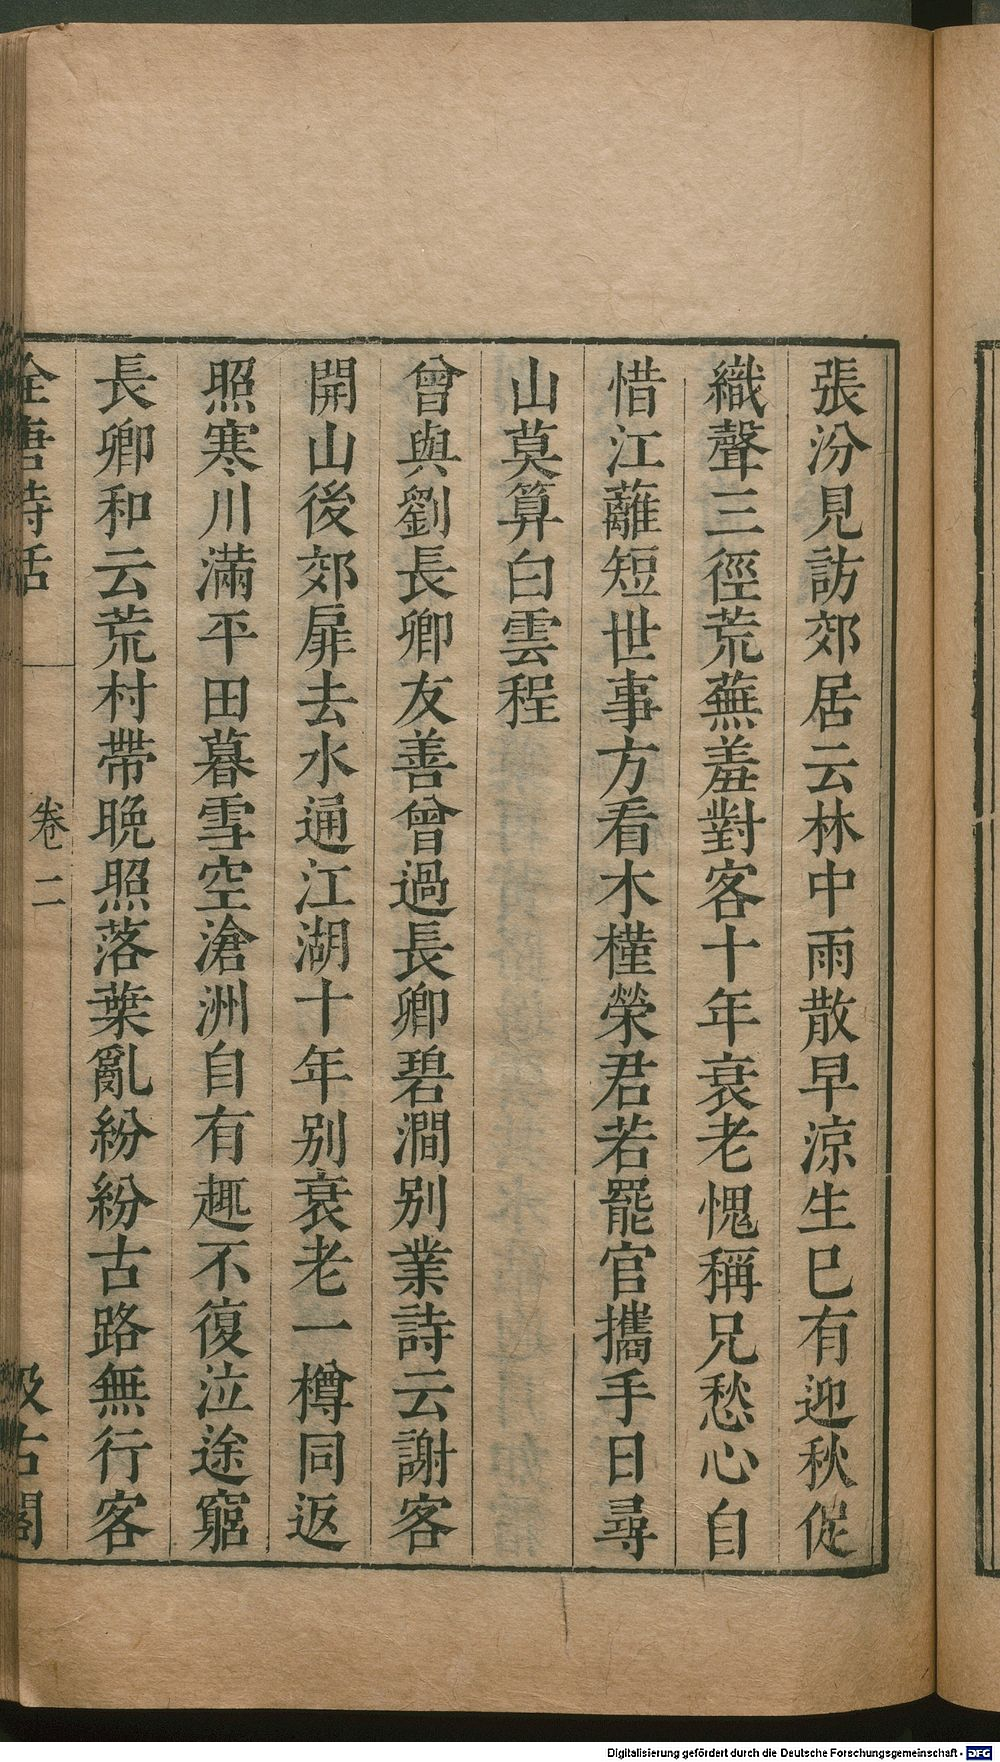 張汾見訪郊居云林中雨散早涼生巳有迎秋促
織聲三徑荒蕪羞對客十年衰老愧稱兄愁心自
惜江蘺短世事方看木槿榮君若罷官攜手日尋
山莫算白雲程
曾與劉長卿友善曾過長卿碧澗别業詩云謝客
開山後郊扉去水通江湖十年别衰老一樽同返
照寒川滿平田暮雪空滄洲自有趣不復泣途窮
長卿和云荒村帶晚照落葉亂紛紛古路無行客
全唐詩話 卷二 汲古閣
Digitalisierung gefördert durch die Deutsche Forschungsgemeinschaft - DFG